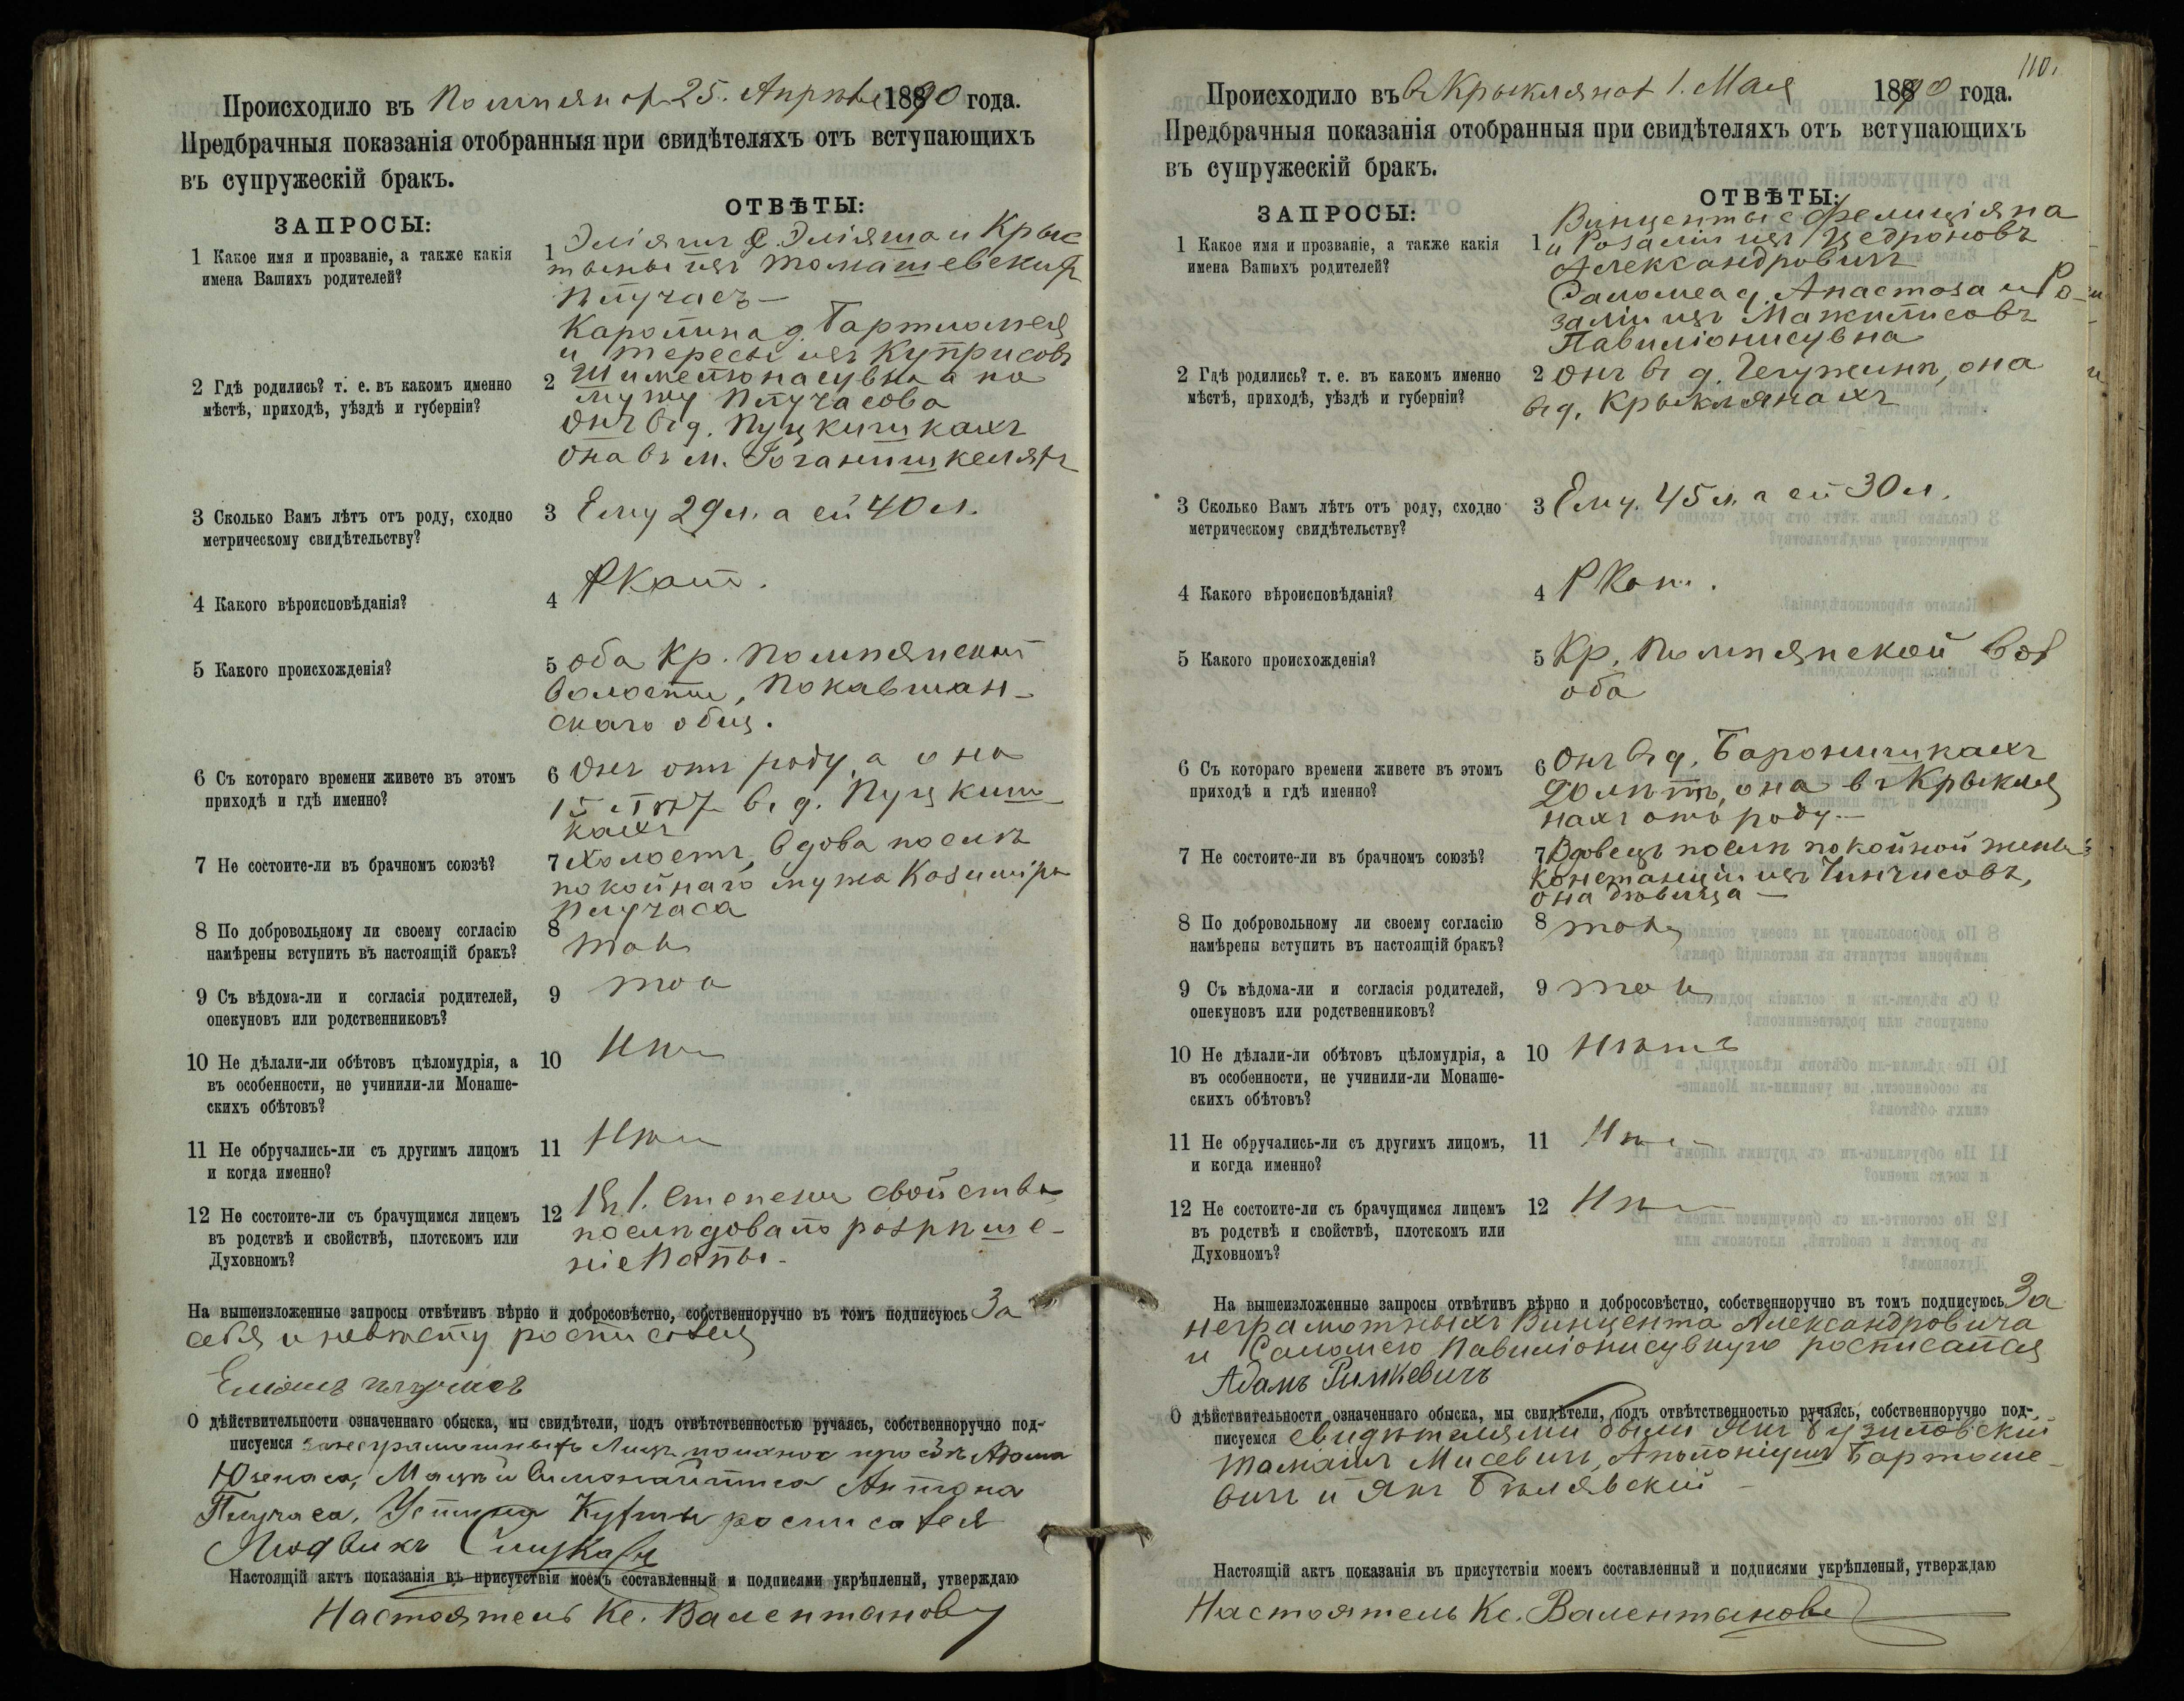 Происходило въ Помпянах 25. Апрѣля 1890 года.
Предбрачныя показанія отобранныя при свидѣтеляхъ отъ вступающихъ
въ супружескій бракъ.
ЗАПРОСЫ:
ОТВѢТЫ:
1 Какое имя и прозваніе, а также какія
имена Вашихъ родителей?
1 Эліяшъ с. Эліяша и Крыс
тыны изъ Томашевскихъ
Плучасъ —
Каролина д. Бартломея
и Тересы изъ Куприсовъ
2 Гдѣ родились? т. е. въ какомъ именно
мѣстѣ, приходѣ, уѣздѣ и губерніи?
2 а по
мужу Плучасова
Онъ въ д. Пуцкишкахъ
Она въ м.
3 Сколько Вамъ лѣтъ отъ роду, сходно
метрическому свидѣтельству?
3 Ему 29 л. а ей 40 л.
4 Какого вѣроисповѣданія?
4 РКат.
5 Какого происхожденія?
5 оба Кр. Помпянской
волости, Покавшан-
скаго общ.
6 Съ котораго времени живете въ этомъ
приходѣ и гдѣ именно?
6 Онъ отъ роду, а она
15 лѣтъ въ д. Пуцкиш-
кахъ
7 Не состоите-ли въ брачномъ союзѣ?
7 Холостъ, вдова послѣ
покойнаго мужа Казиміра
Плучаса
8 По добровольному ли своему согласію
намѣрены вступить въ настоящій бракъ?
8 так
9 Съ вѣдома-ли и согласія родителей,
опекуновъ или родственниковъ?
9
10 Не дѣлали-ли обѣтовъ цѣломудрія, а
въ особенности, не учинили-ли Монаше-
скихъ обѣтовъ?
10 Нѣт
11 Не обручались-ли съ другимъ лицомъ
и когда именно?
11 Нѣт
12 Не состоите-ли съ брачущимся лицемъ
въ родствѣ и свойствѣ, плотскомъ или
Духовномъ?
12 Въ 1. степени свойства
послѣдовало розрѣше-
ніе Папы —
На вышеизложенные запросы отвѣтивъ вѣрно и добросовѣстно, собственноручно въ томъ подписуюсь За
себя и невѣсту росписался
О дѣйствительности означеннаго обыска, мы свидѣтели, подъ отвѣтственностью ручаясь, собственноручно под-
писуемся Адама
Антона
Плучаса, росписался
Людвикъ
Настоящій актъ показанія въ присутствіи моемъ составленный и подписями укрѣпленый, утверждаю
Настоятель Кс. Валентынов
110.
Происходило въ в Крыклянах 1. Мая 1890 года.
Предбрачныя показанія отобранныя при свидѣтеляхъ отъ вступающихъ
въ супружескій бракъ.
ЗАПРОСЫ:
ОТВѢТЫ:
1 Какое имя и прозваніе, а также какія
имена Вашихъ родителей?
1 Винценты с Фелиціяна
и Розаліи изъ
Александровичъ
Саломеа д. Анастаза и Ро-
заліи изъ
Павиліонисувна
2 Гдѣ родились? т. е. въ какомъ именно
мѣстѣ, приходѣ, уѣздѣ и губерніи?
2 Онъ въ д. она
въ д. Крыклянахъ
3 Сколько Вамъ лѣтъ отъ роду, сходно
метрическому свидѣтельству?
3 Ему. 45 л. а ей 30 л.
4 Какого вѣроисповѣданія?
4 РКат.
5 Какого происхожденія?
5 Кр. Помпянской Вол
оба
6 Съ котораго времени живете въ этомъ
приходѣ и гдѣ именно?
6 Онъ въ д. Баронишкахъ
20 лѣтъ, она въ Крыкля
нахъ отъ роду. —
7 Не состоите-ли въ брачномъ союзѣ?
7 Вдовецъ послѣ покойной жены
Констанціи изъ
она дѣвица —
8 По добровольному ли своему согласію
намѣрены вступить въ настоящій бракъ?
8 так
9 Съ вѣдома-ли и согласія родителей,
опекуновъ или родственниковъ?
9 так
10 Не дѣлали-ли обѣтовъ цѣломудрія, а
въ особенности, не учинили-ли Монаше-
скихъ обѣтовъ?
10 Нѣтъ
11 Не обручались-ли съ другимъ лицомъ,
и когда именно?
11 Нѣт
12 Не состоите-ли съ брачущимся лицемъ
въ родствѣ и свойствѣ, плотскомъ или
Духовномъ?
12 Нѣт
На вышеизложенные запросы отвѣтивъ вѣрно и добросовѣстно, собственноручно въ томъ подписуюсь За
неграмотныхъ Винцента Александровича
и Саломею Павиліонисувную росписался
Адамъ Римкевичъ
О дѣйствительности означеннаго обыска, мы свидѣтели, подъ отвѣтственностью ручаясь, собственноручно под-
писуемся свидѣтелями были Янъ
Тамашъ Мисевич, Бартоше-
вичъ и Янъ Бѣлявскій —
Настоящій актъ показанія въ присутствіи моемъ составленный и подписями укрѣпленый, утверждаю
Настоятель Кс. Валентынов